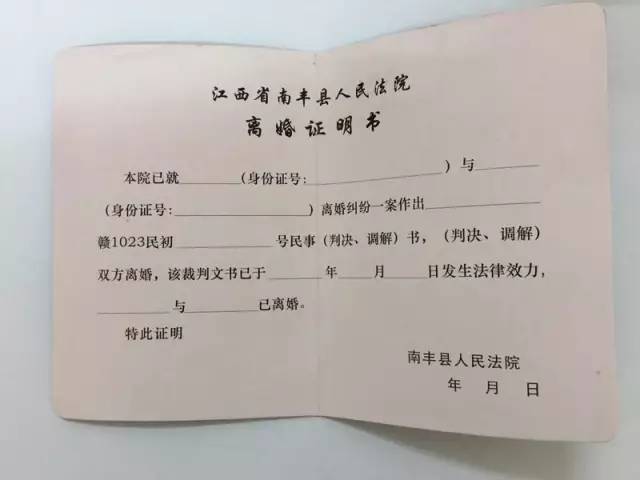 江西省南丰县人民法院
离婚证明书
本院已就________(身份证号:______________)与________
(身份证号:______________)离婚纠纷一案作出______________
赣1023民初____________号民事(判决、调解)书，(判决、调解)
双方离婚，该裁判文书已于______年____月____日发生法律效力，
________与________已离婚。
特此证明
南丰县人民法院
年 月 日